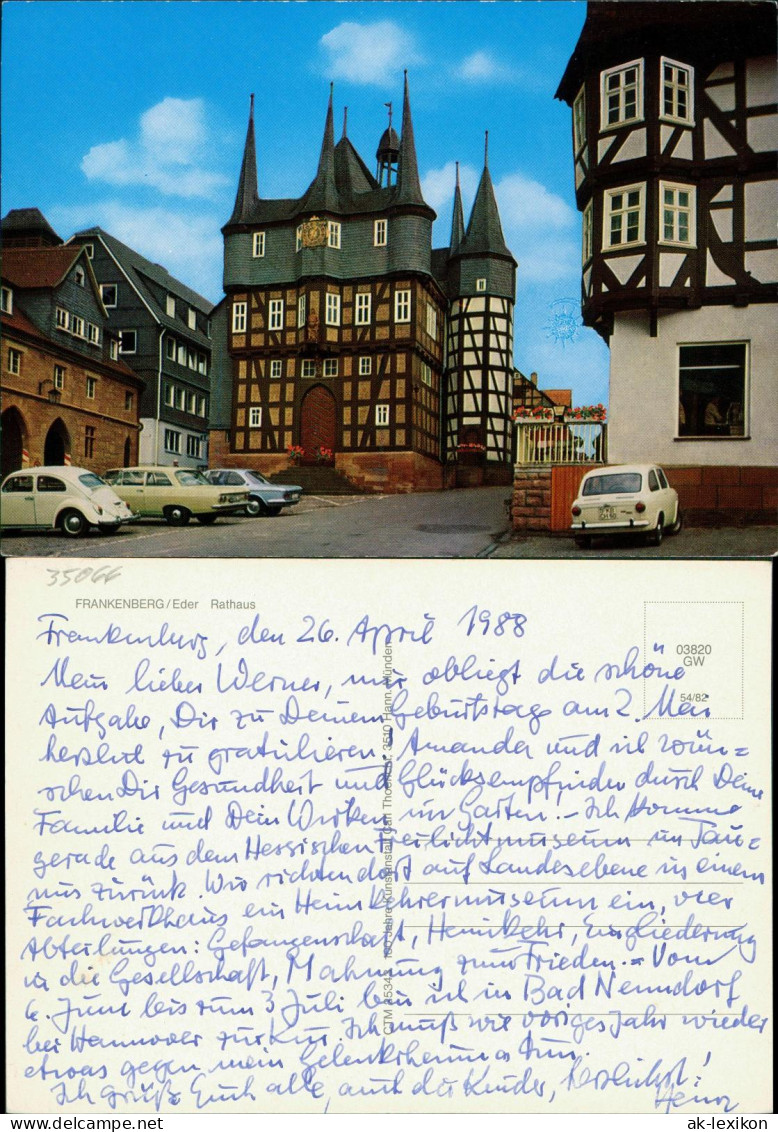 35066
FRANKENBERG/Eder Rathaus
03820
GW
54/82
Frankenberg, den 26. April 1988
Mein lieber Werner, mir obliegt die schöne
Aufgabe, Dir zu Deinem Geburtstage am 2. Mai
herzlich zu gratulieren. Amanda und ich wün=
schen Dir Gesundheit und Glücksempfinden durch Deine
Familie und Dein Wirken im Garten. - Ich komme
gerade aus dem Hessischen Freilichtmuseum im Tau=
nus zurück. Wir richten dort auf Landesebene in einem
Fachwerkhaus ein Heimkehrermuseum ein, vier
Abteilungen: Gefangenschaft, Heimkehr, Eingliederung
in die Gesellschaft, Mahnung zum Frieden. - Vom
6. Juni bis zum 3. Juli bin ich in Bad Nenndorf
bei Hannover zur Kur. Ich muß wie voriges Jahr wieder
etwas gegen mein Gelenkrheuma tun.
Ich grüße Euch alle, auch die Kinder, herzlichst!
100 Jahre Kunstanstalt Carl Thoericht, 3510 Hann. Münden
ak-lexikon